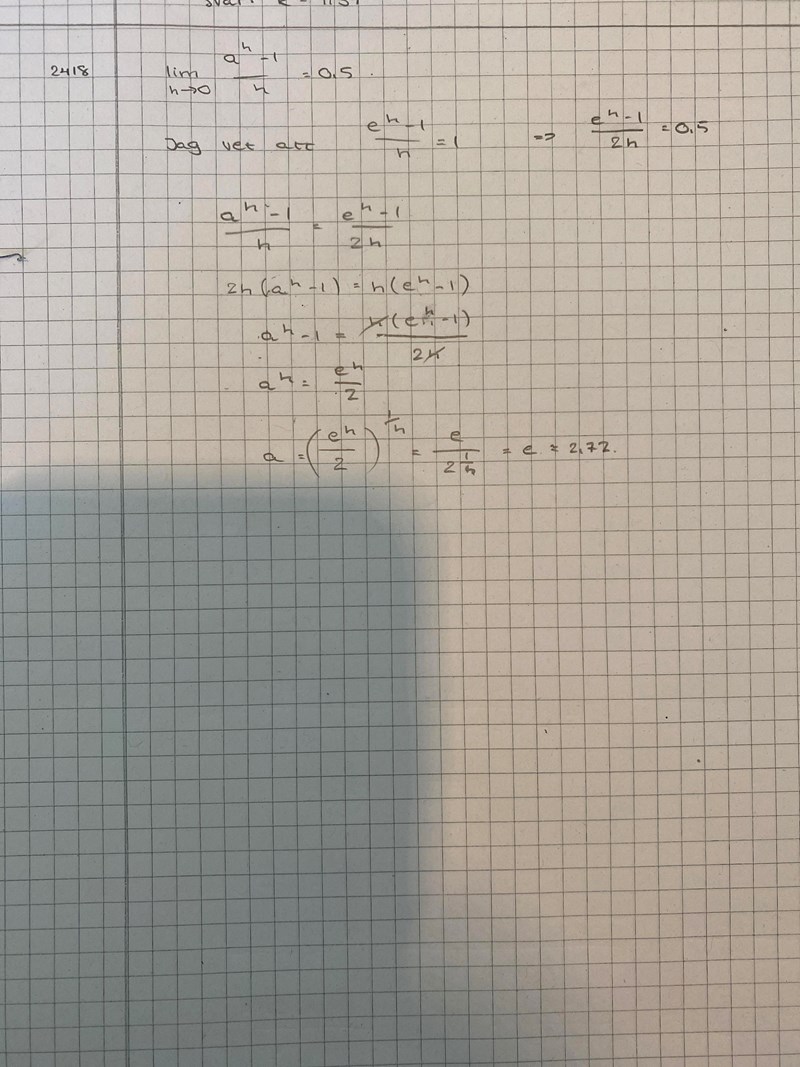 2418 lim h→0 (a^h - 1)/h = 0.5
Jag vet att (e^h - 1)/h = 1 => (e^h - 1)/2h = 0.5
(a^h - 1)/h = (e^h - 1)/2h
2h(a^h - 1) = h(e^h - 1)
a^h - 1 = h(e^h - 1)/2h
a^h = e^h/2
a = (e^h/2)^(1/h) = e/2^(1/h) = e ≈ 2,72.